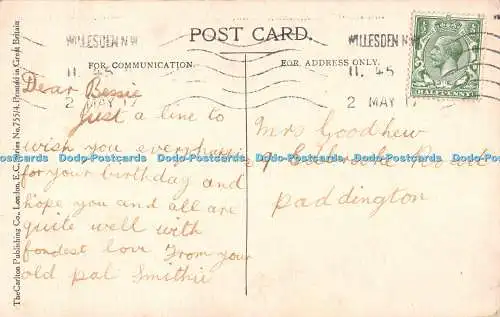 POST CARD.
WILLESDEN N.W
11. 45
2 MAY 17
WILLESDEN N.W
11. 45
2 MAY 17
FOR COMMUNICATION.
FOR ADDRESS ONLY.
HALFPENNY
Dear Bessie
Just a line to
wish you every
for your birthday and
hope you and all are
quite well with
fondest love From your
old pal Smithie
Mrs Goodhew
9
Paddington
The Carlton Publishing Co., London, E.C. Series No. 755/4. Printed in Great Britain
Dodo-Postcards Dodo-Postcards Dodo-Postcards Dodo-Postcards Dodo-Postcards Dodo-Postcards